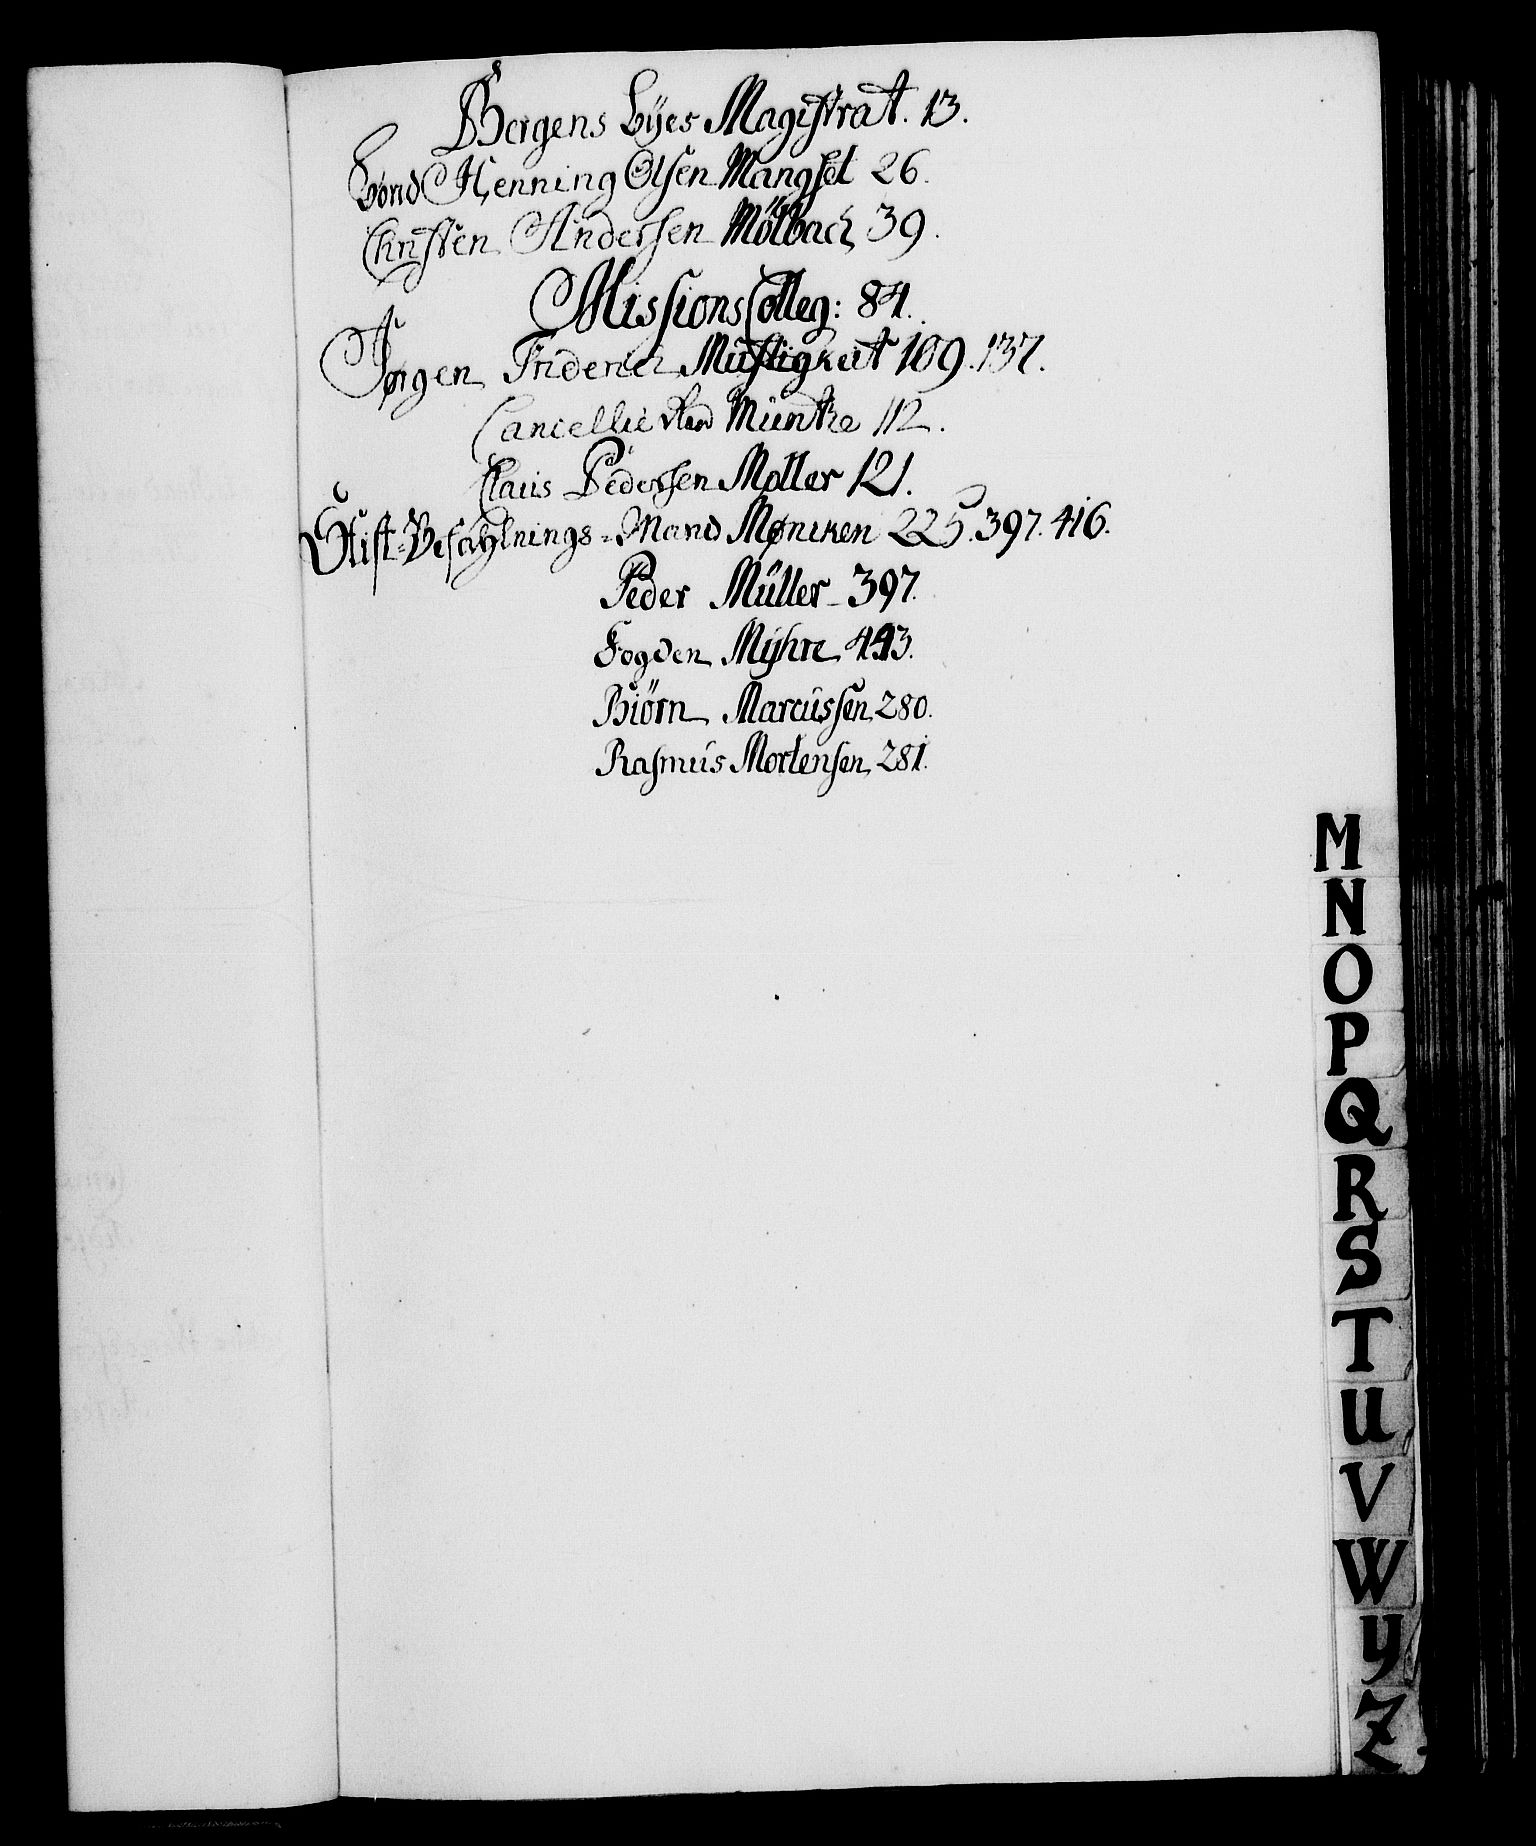 Bergens Byes Magistrat. 13.
Bond Henning Olsen Mangset 26.
Christen Andersen Mölbach 39.
Missions Colleg: 84.
Jørgen Friderich Mustigkeit 109. 137.
Cancellie Müntke 112.
Claus Pedersen Møller 121.
Stift-Befahlnings-Mand Mønicken 225. 397. 416.
Peder Müller 397.
Fogden Myhre 443.
Biörn Marcussen 280.
Rasmus Mortensen 281.
M
N
O
P
Q
R
S
T
U
V
W
Y
Z